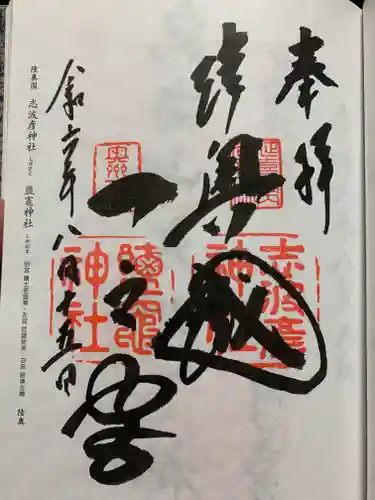 奉拝
陸奥國
一之宮
令和六年八月十五日
志波彦神社
鹽竈神社
陸奥国 志波彦神社 しわひこ 鹽竈神社 しおがま